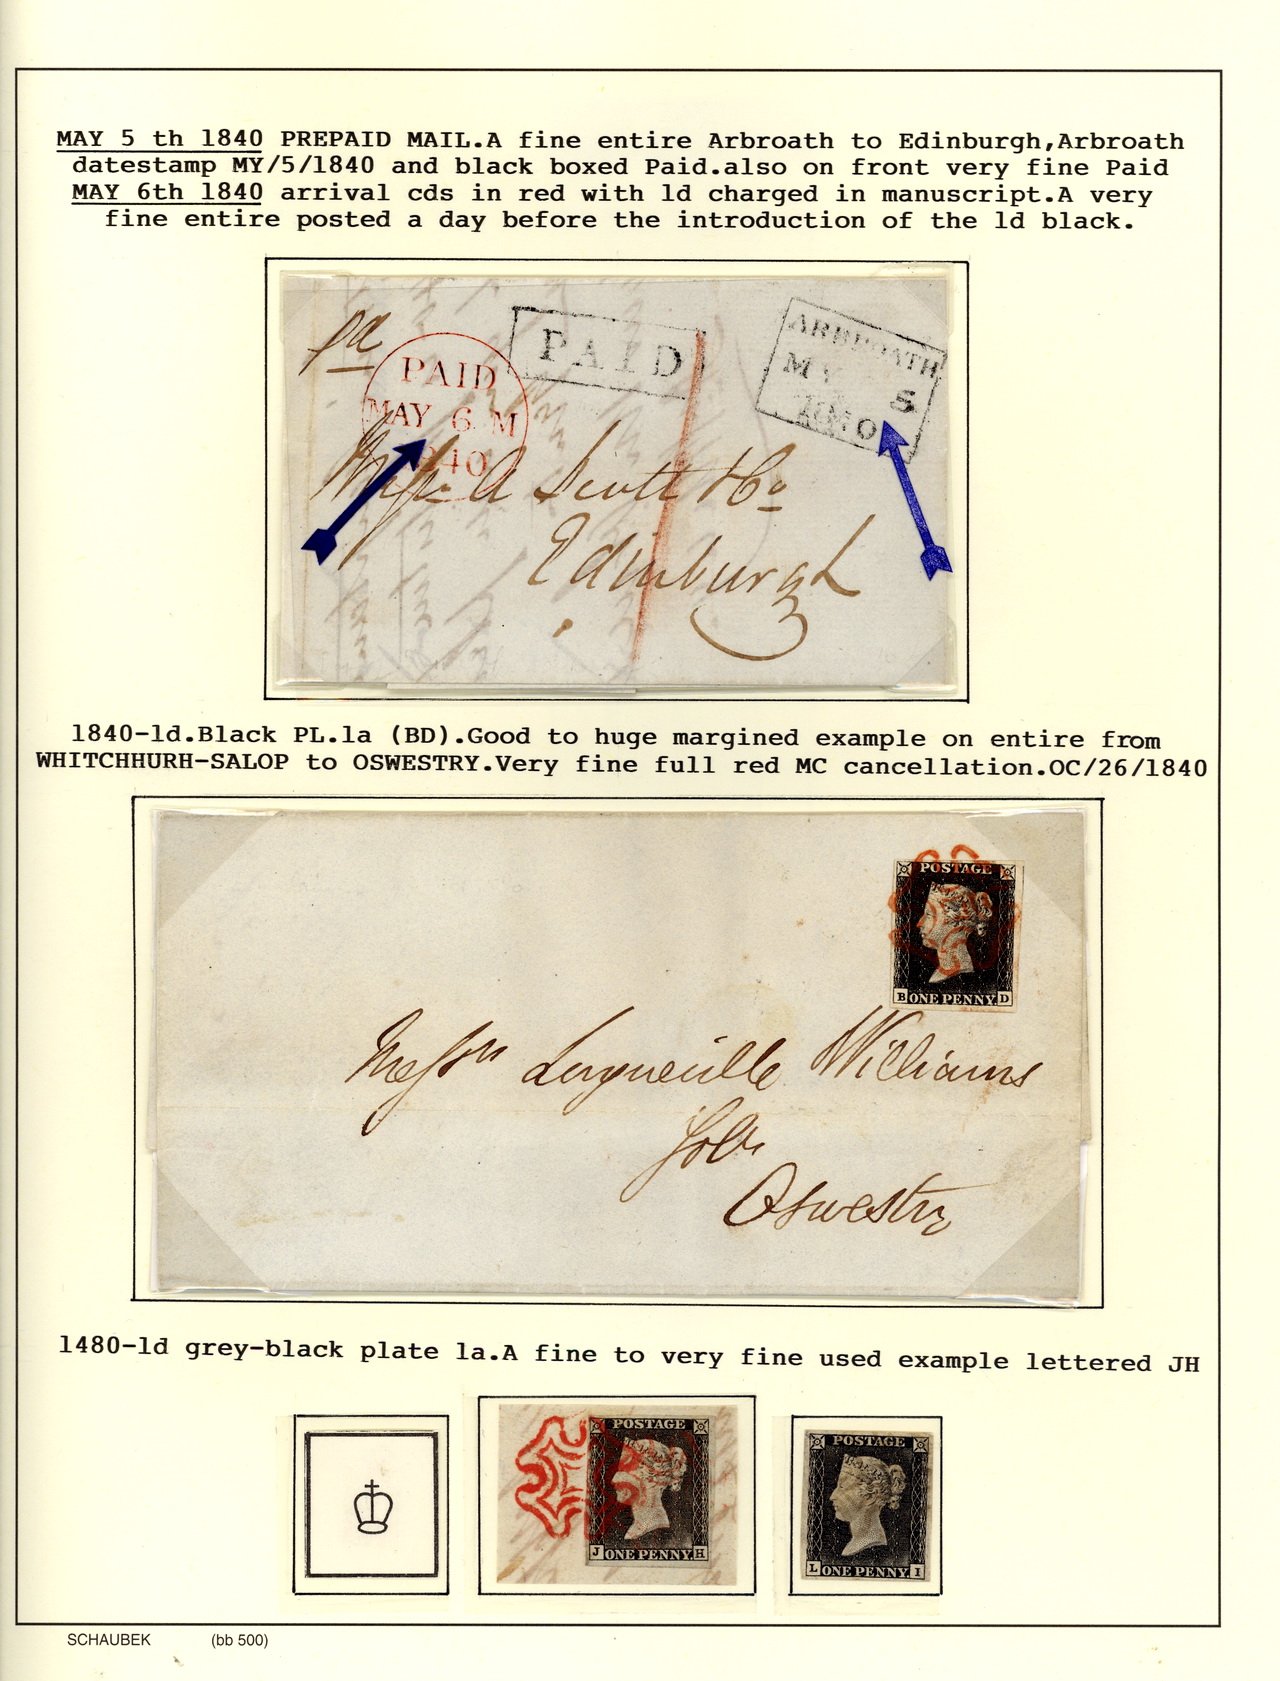 MAY 5 th 1840 PREPAID MAIL.A fine entire Arbroath to Edinburgh,Arbroath
datestamp MY/5/1840 and black boxed Paid.also on front very fine Paid
MAY 6th 1840 arrival cds in red with 1d charged in manuscript.A very
fine entire posted a day before the introduction of the 1d black.
pd
PAID
ARBROATH
MY 5
1840
PAID
MAY 6 M
1840
A Scott & Co
Edinburgh
1840-1d.Black PL.1a (BD).Good to huge margined example on entire from
WHITCHHURH-SALOP to OSWESTRY.Very fine full red MC cancellation.OC/26/1840
POSTAGE
B ONE PENNY D
Messrs Longueville Williams
Solrs
Oswestry
1480-1d grey-black plate 1a.A fine to very fine used example lettered JH
POSTAGE
J ONE PENNY H
POSTAGE
L ONE PENNY I
SCHAUBEK (bb 500)